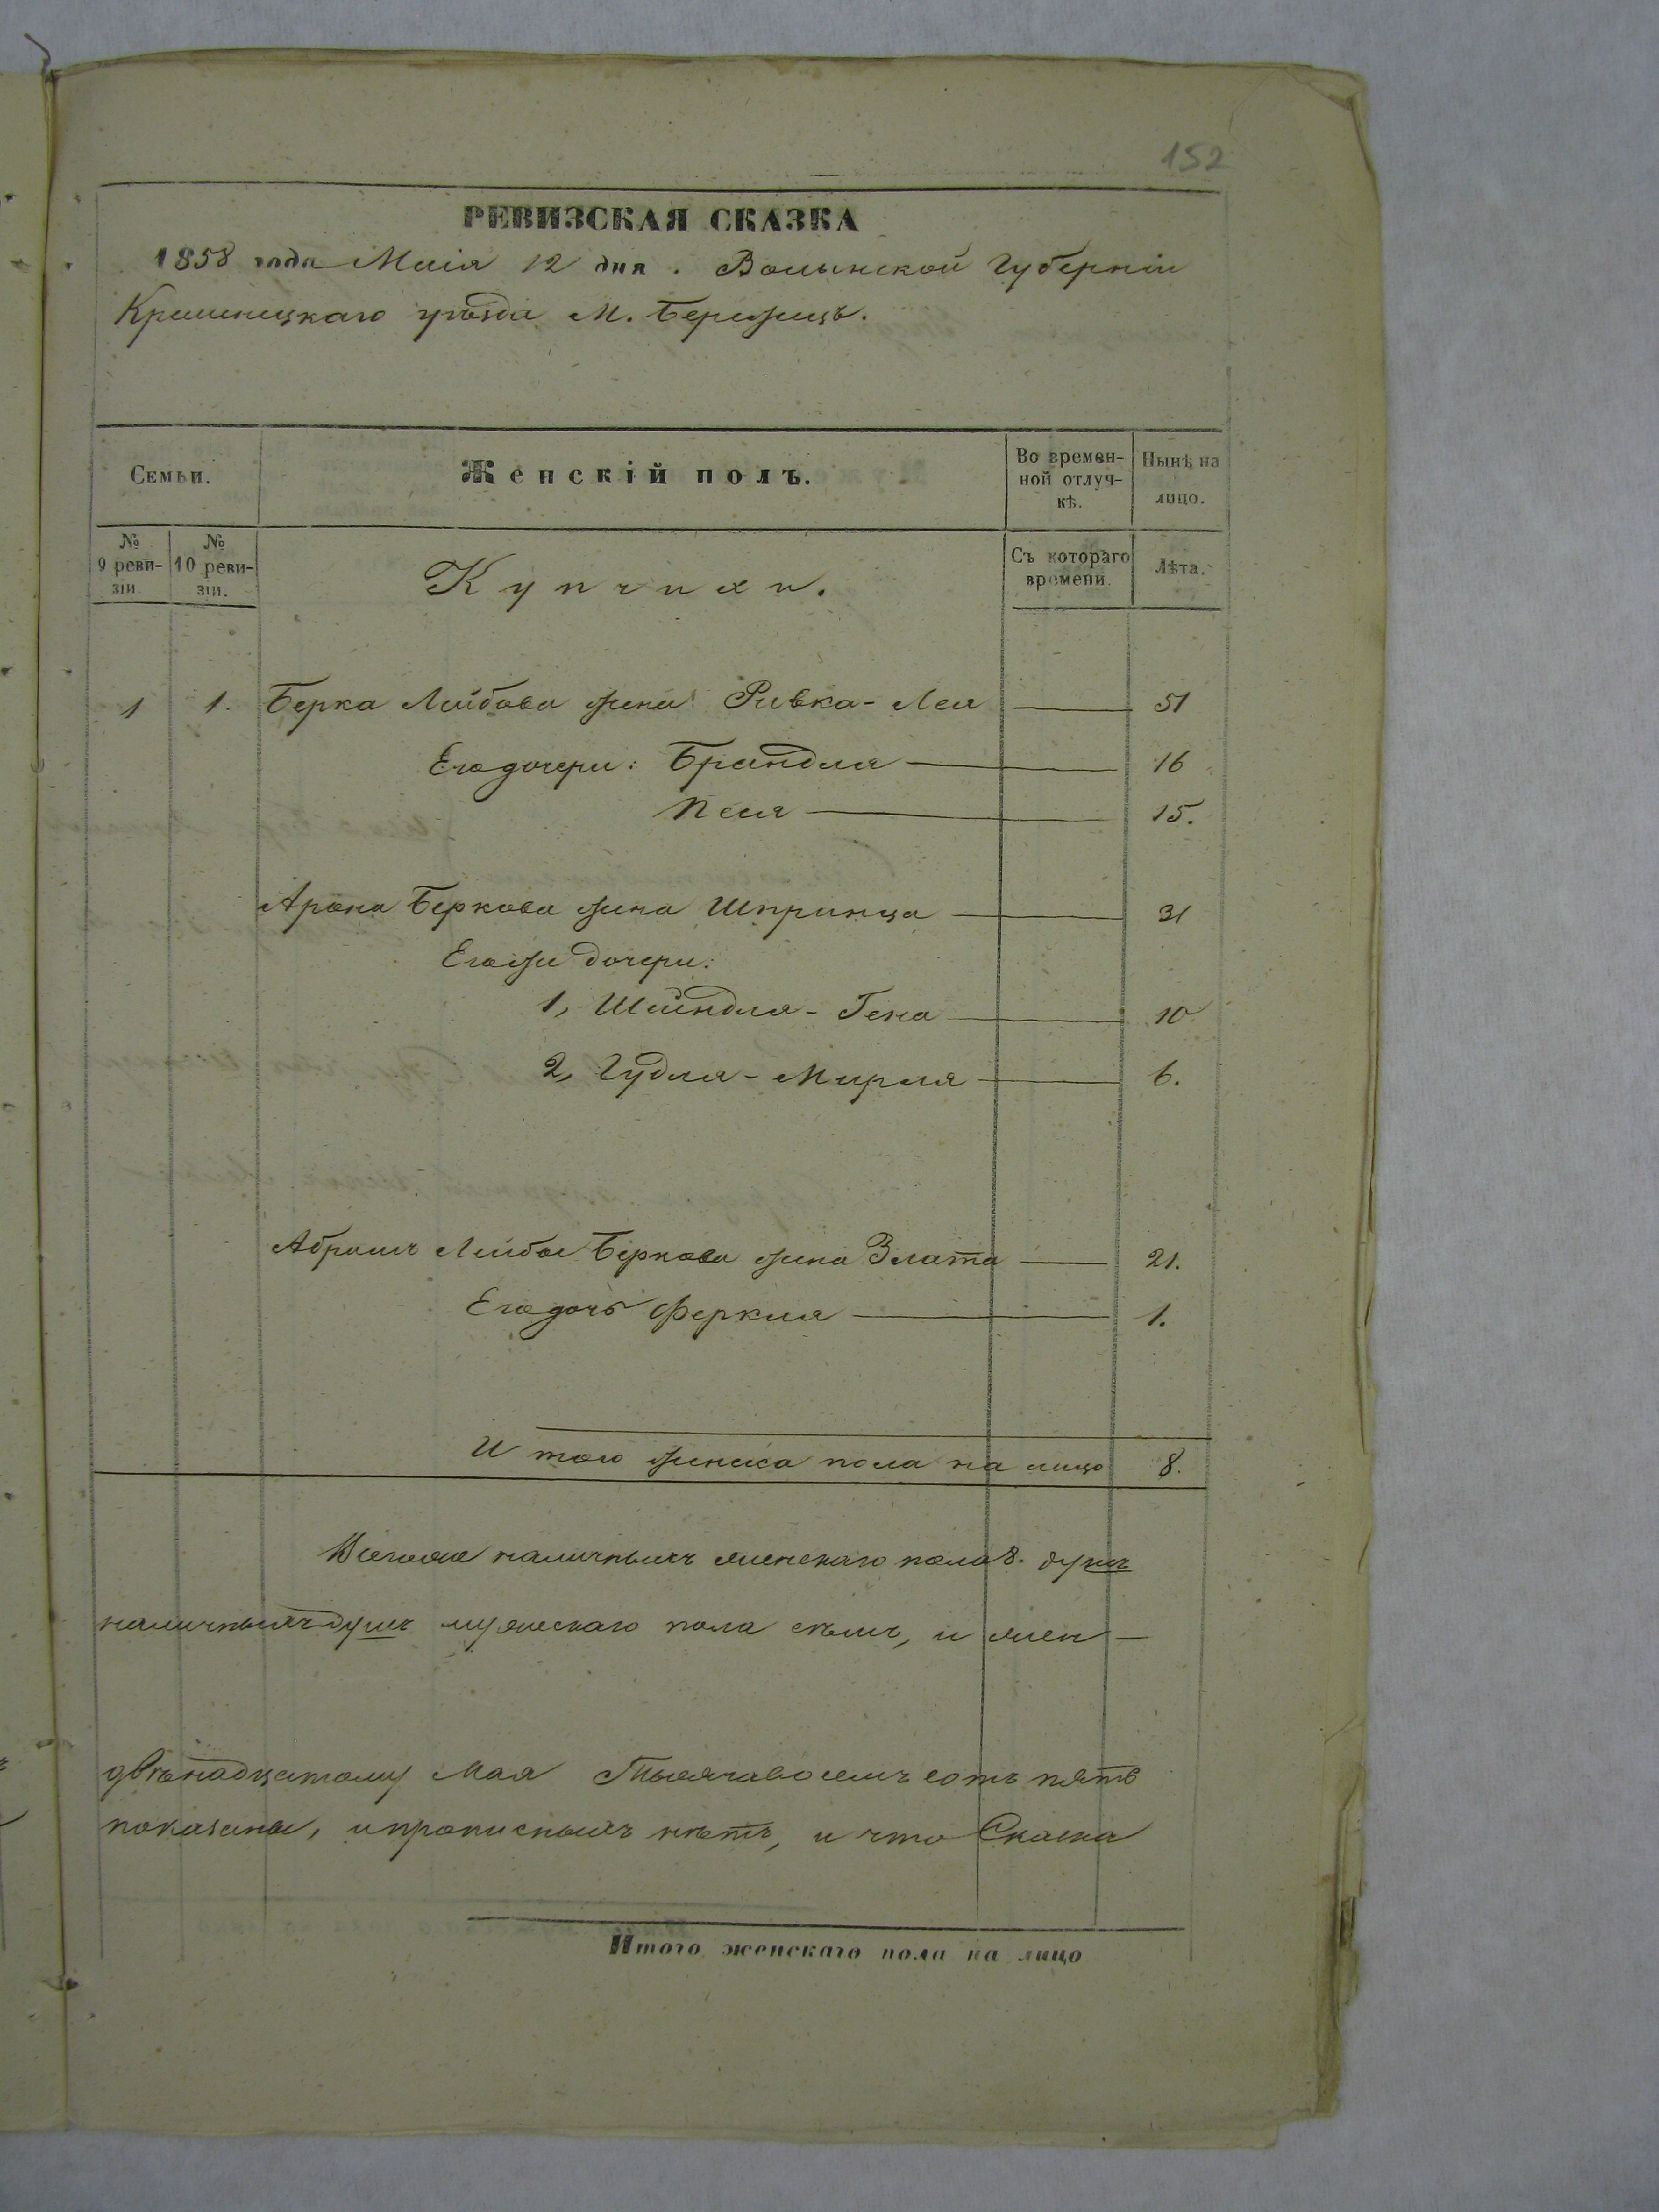 152
РЕВИЗСКАЯ СКАЗКА
1858 года Маія 12 дня. Волынской Губерніи
Кременецкаго уѣзда М. Бережецъ.
Семьи. Женскій полъ. Во времен-ной отлуч-кѣ. Нынѣ на лицо.
№ 9 реви-зіи. № 10 реви-зіи. Купчихи. Съ котораго времени. Лѣта.
1 1. Берка Лейбова жена Ривка-Лея 51
Его дочери: Брандля 16
Песя 15.
Арона Беркова жена Шпринца 31
Егожи дочери:
1, Шейндля-Гена 10
2, Гудля-Мирля 6.
Абрамъ Лейбы Беркова жена Злата 21.
Его дочь Феркля 1.
И того женска пола на лицо 8.
Всегоже наличныхъ женскаго пола 8. душъ
наличныхъ душъ мужескаго пола семь, и жен-
двѣнадцатому Мая Тысяча восемь сотъ пять
показаны, и прописныхъ нѣтъ, и что Сказка
Итого женскаго пола на лицо